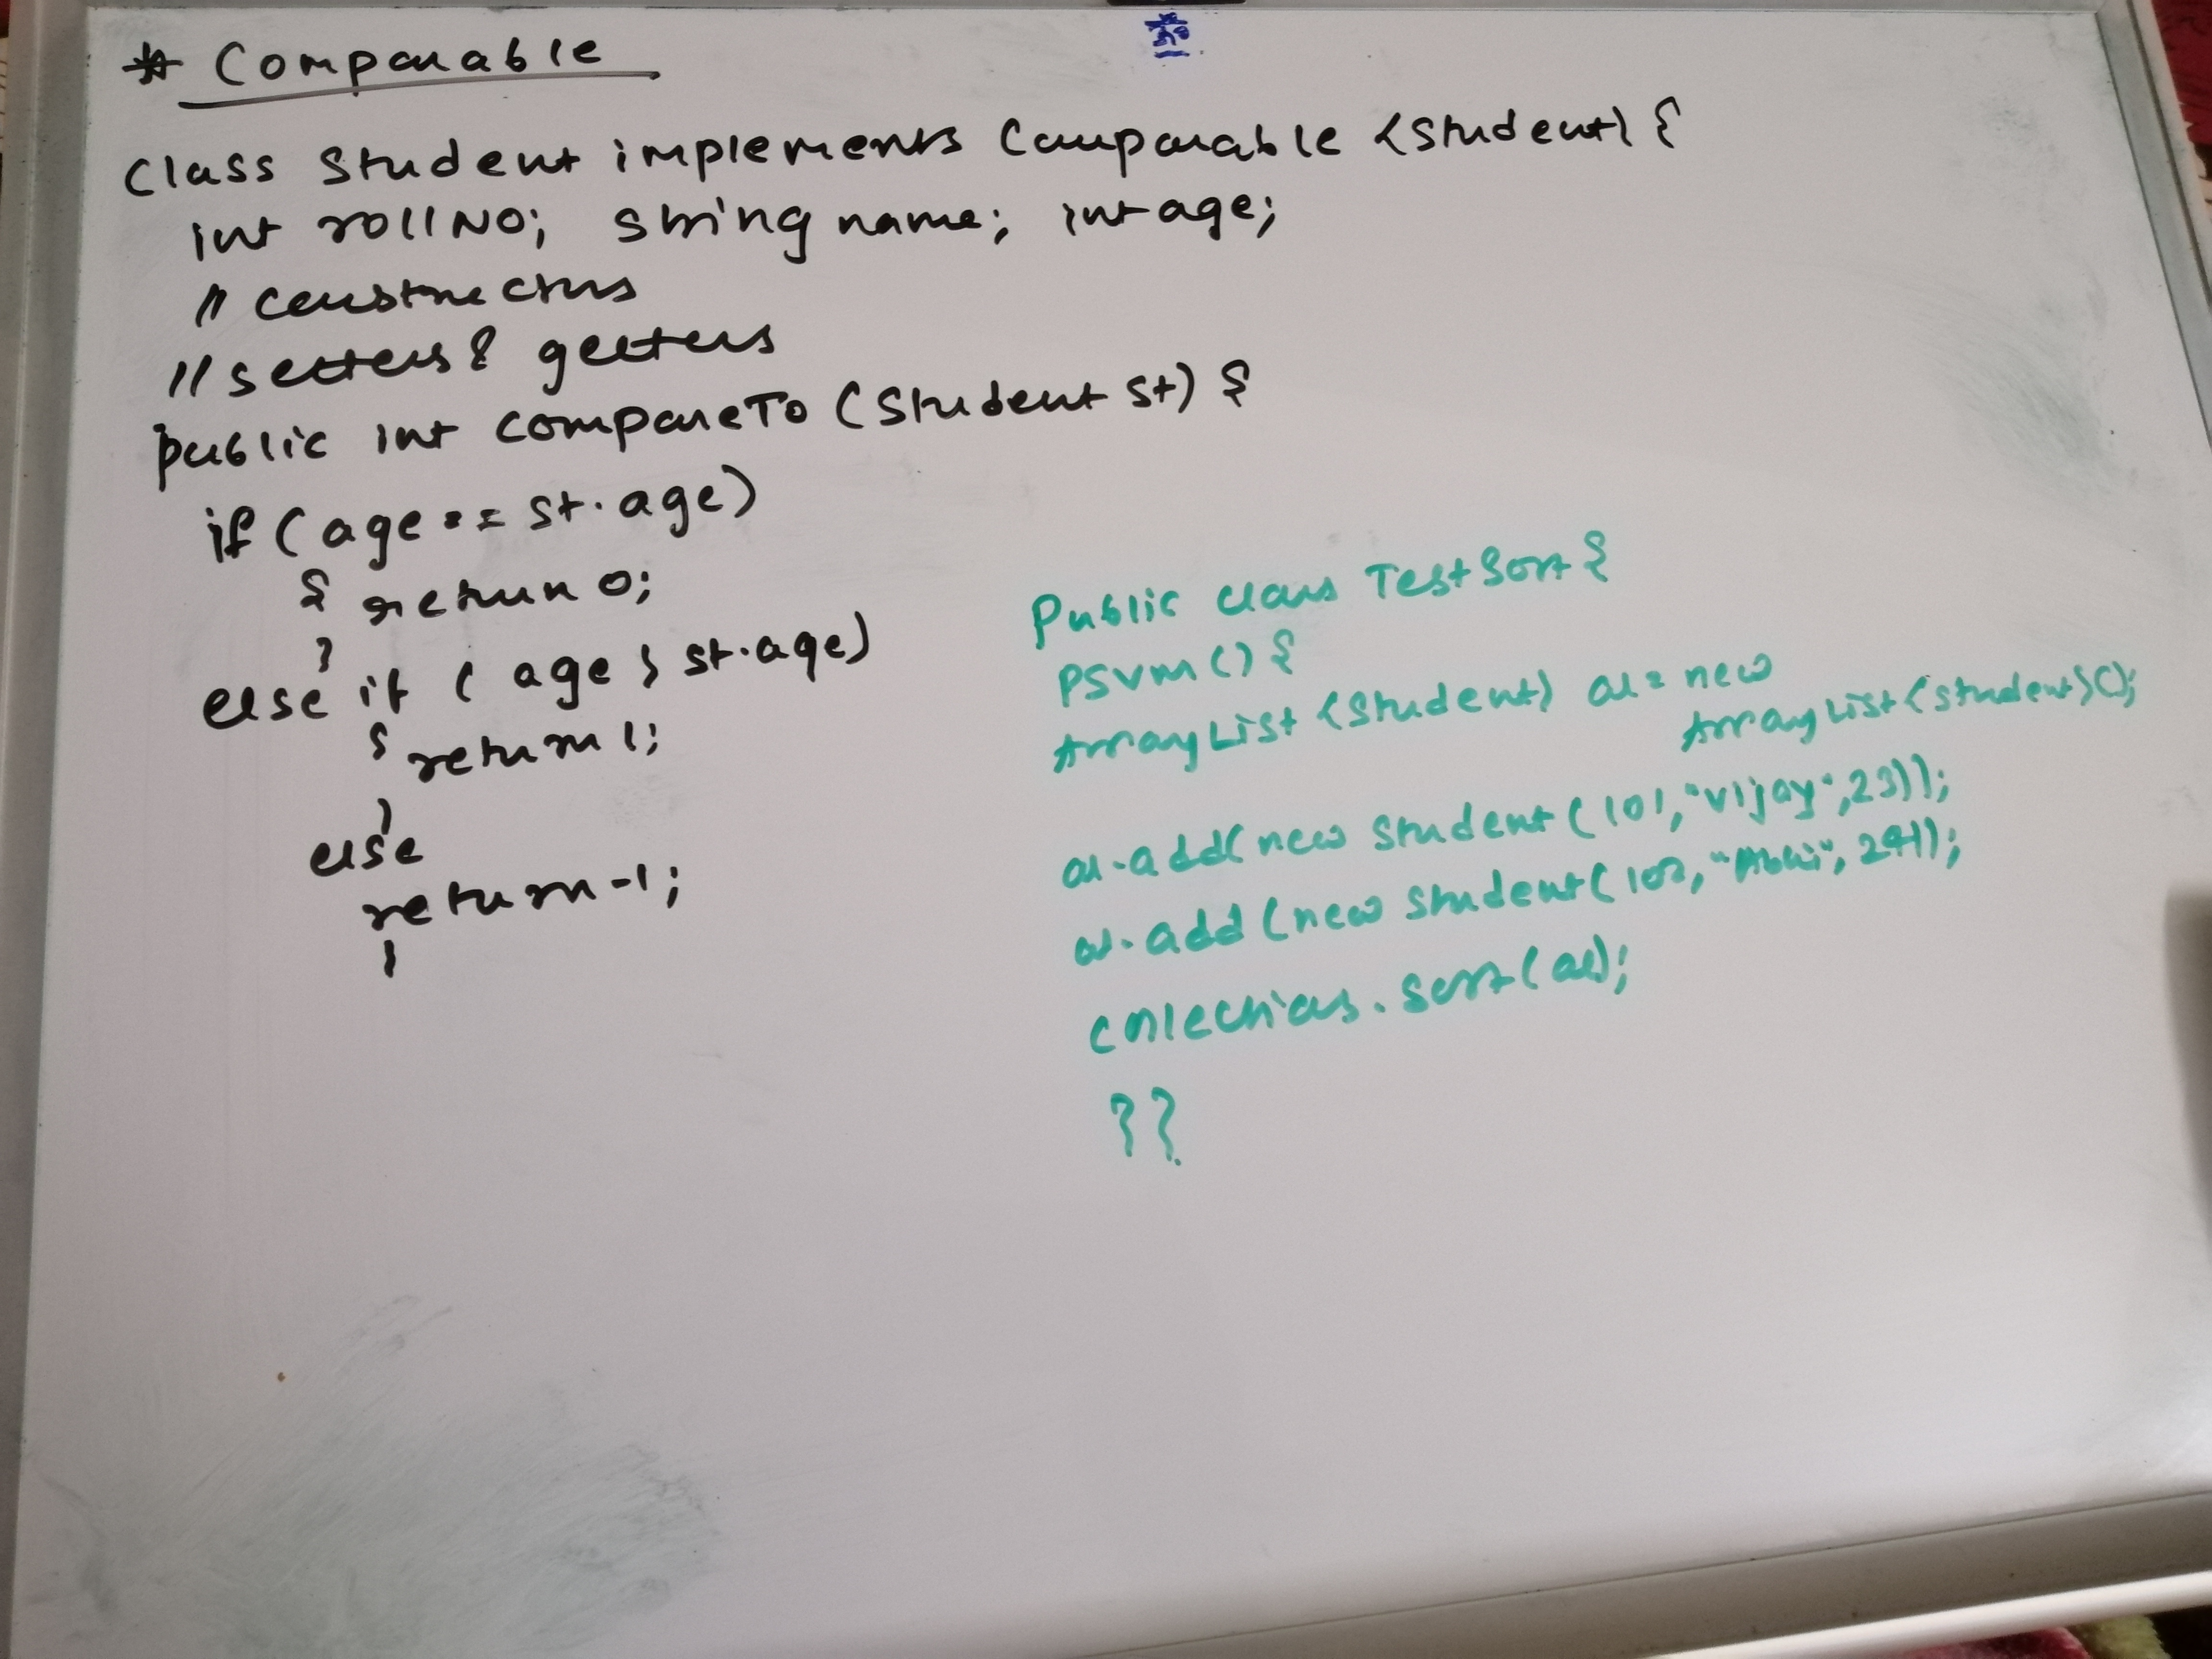 ॐ
* Comparable
Class Student implements Comparable <Student> {
int rollNo; string name; int age;
// constructors
// setters & getters
public int compareTo (Student st) {
if (age == st.age)
{ return 0;
}
else if (age > st.age)
{ return 1;
}
else
return -1;
}
Public class TestSort {
PSVM () {
ArrayList <Student> al = new
ArrayList <Student>();
al.add(new Student (101, "Vijay", 23));
al.add (new Student (102, "Abhi", 24));
Collections.sort (al);
}}